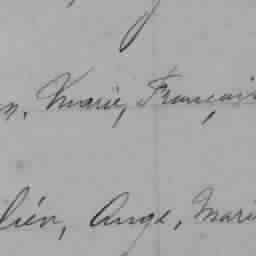 n, Marie, Françoi
lien, Ange, Mari